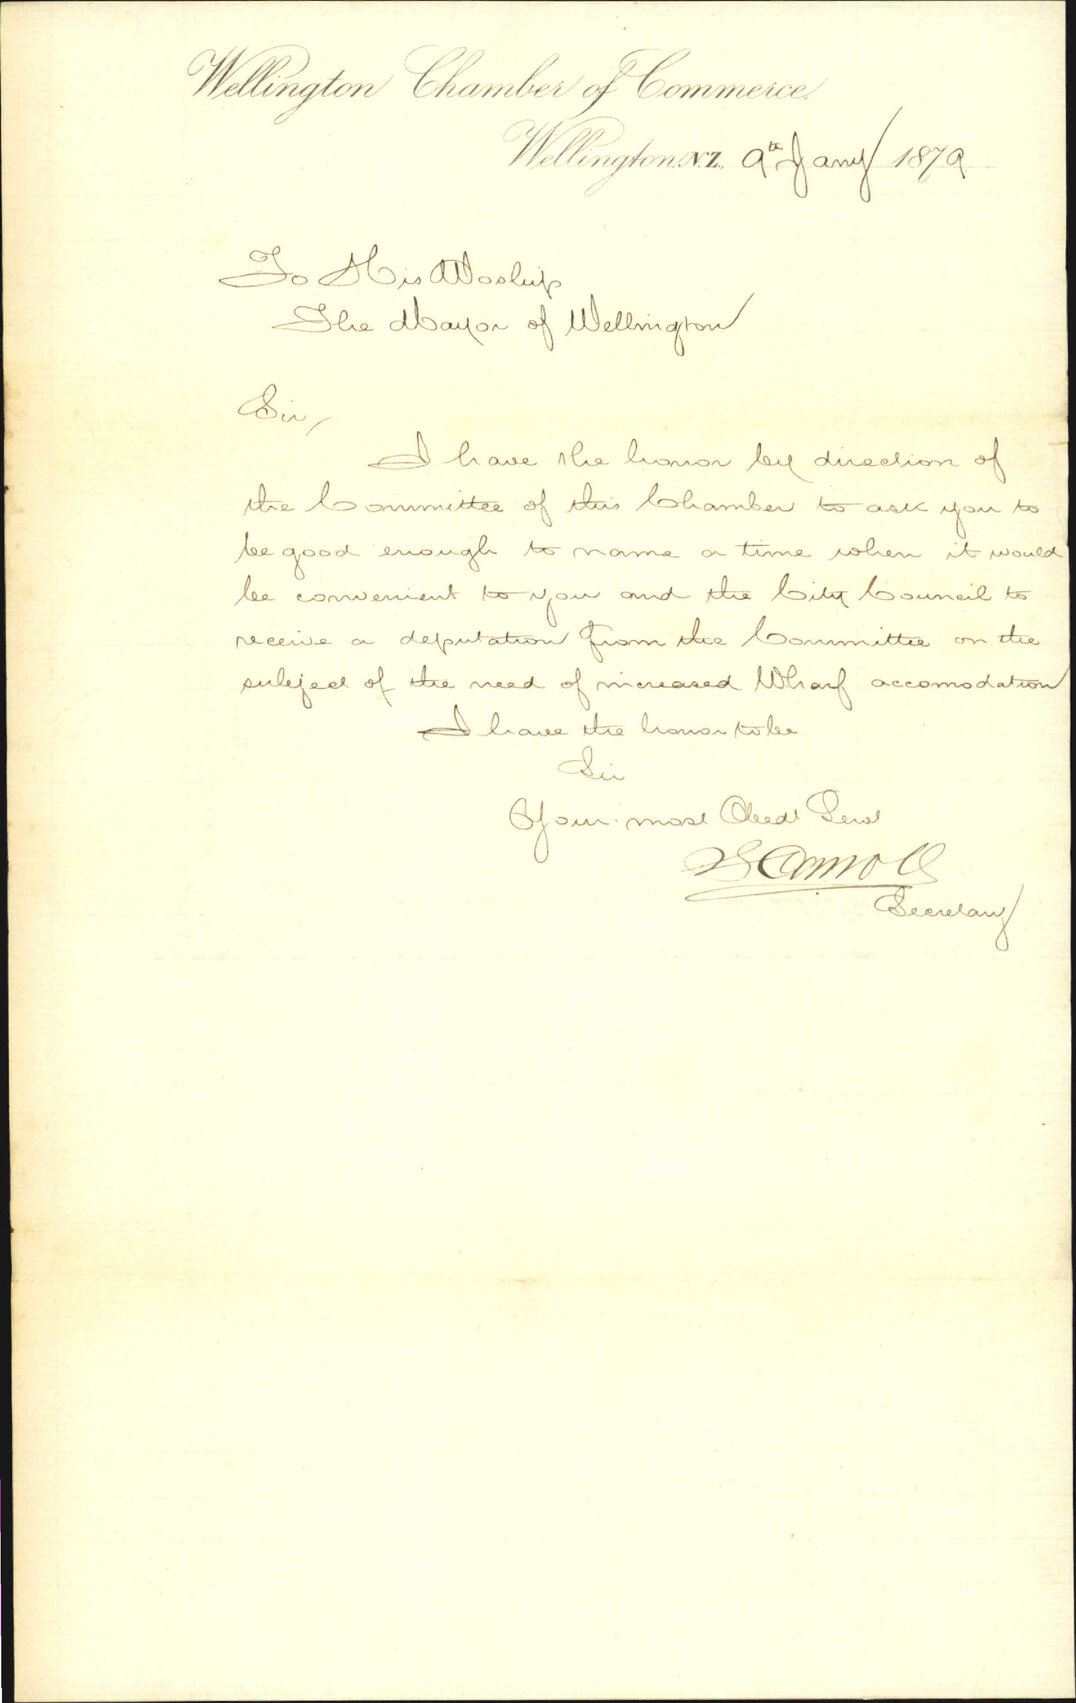 Wellington Chamber of Commerce.
Wellington N.Z. 9th Jany 1879
To His Worship
The Mayor of Wellington
Sir,
I have the honor by direction of
the Committee of this Chamber to ask you to
be good enough to name a time when it would
be convenient to you and the City Council to
receive a deputation from the Committee on the
subject of the need of increased Wharf accomodation
I have the honor to be
Sir
Your most Obedt Servt
Carroll
Secretary